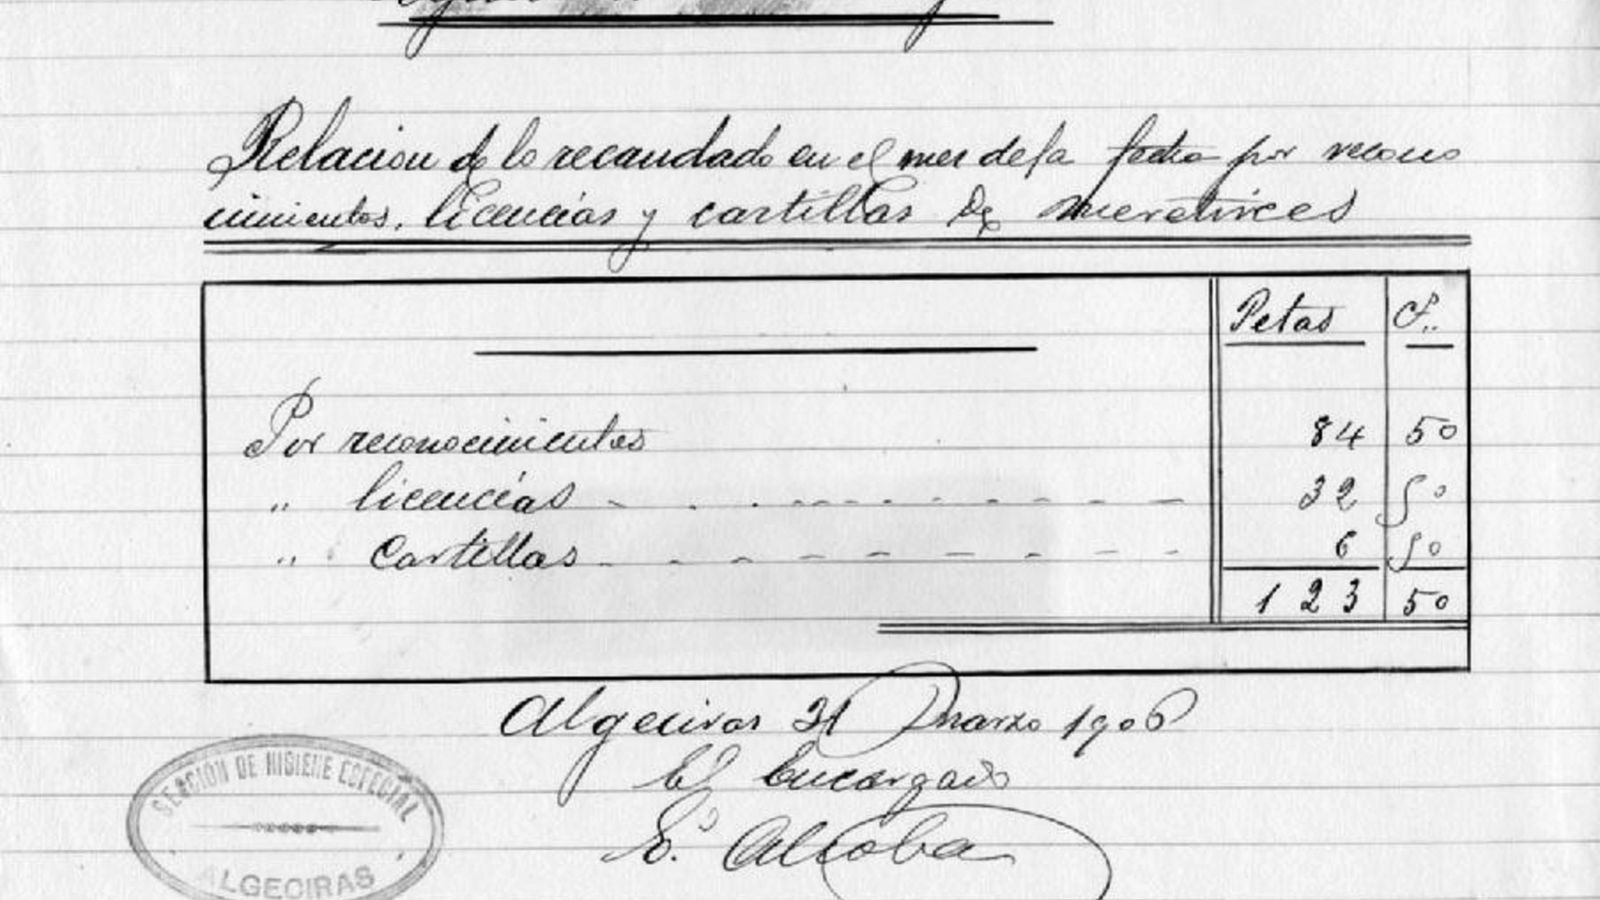 Relacion de lo recaudado en el mes de la fecha por recono
cimientos, licencias y cartillas de meretrices
Petas C.
Por reconocimientos 84 50
" licencias 32 50
" Cartillas 6 50
123 50
Algeciras 31 Marzo 1906
El Encargado
E. Alcoba
SECCIÓN DE HIGIENE ESPECIAL
ALGECIRAS